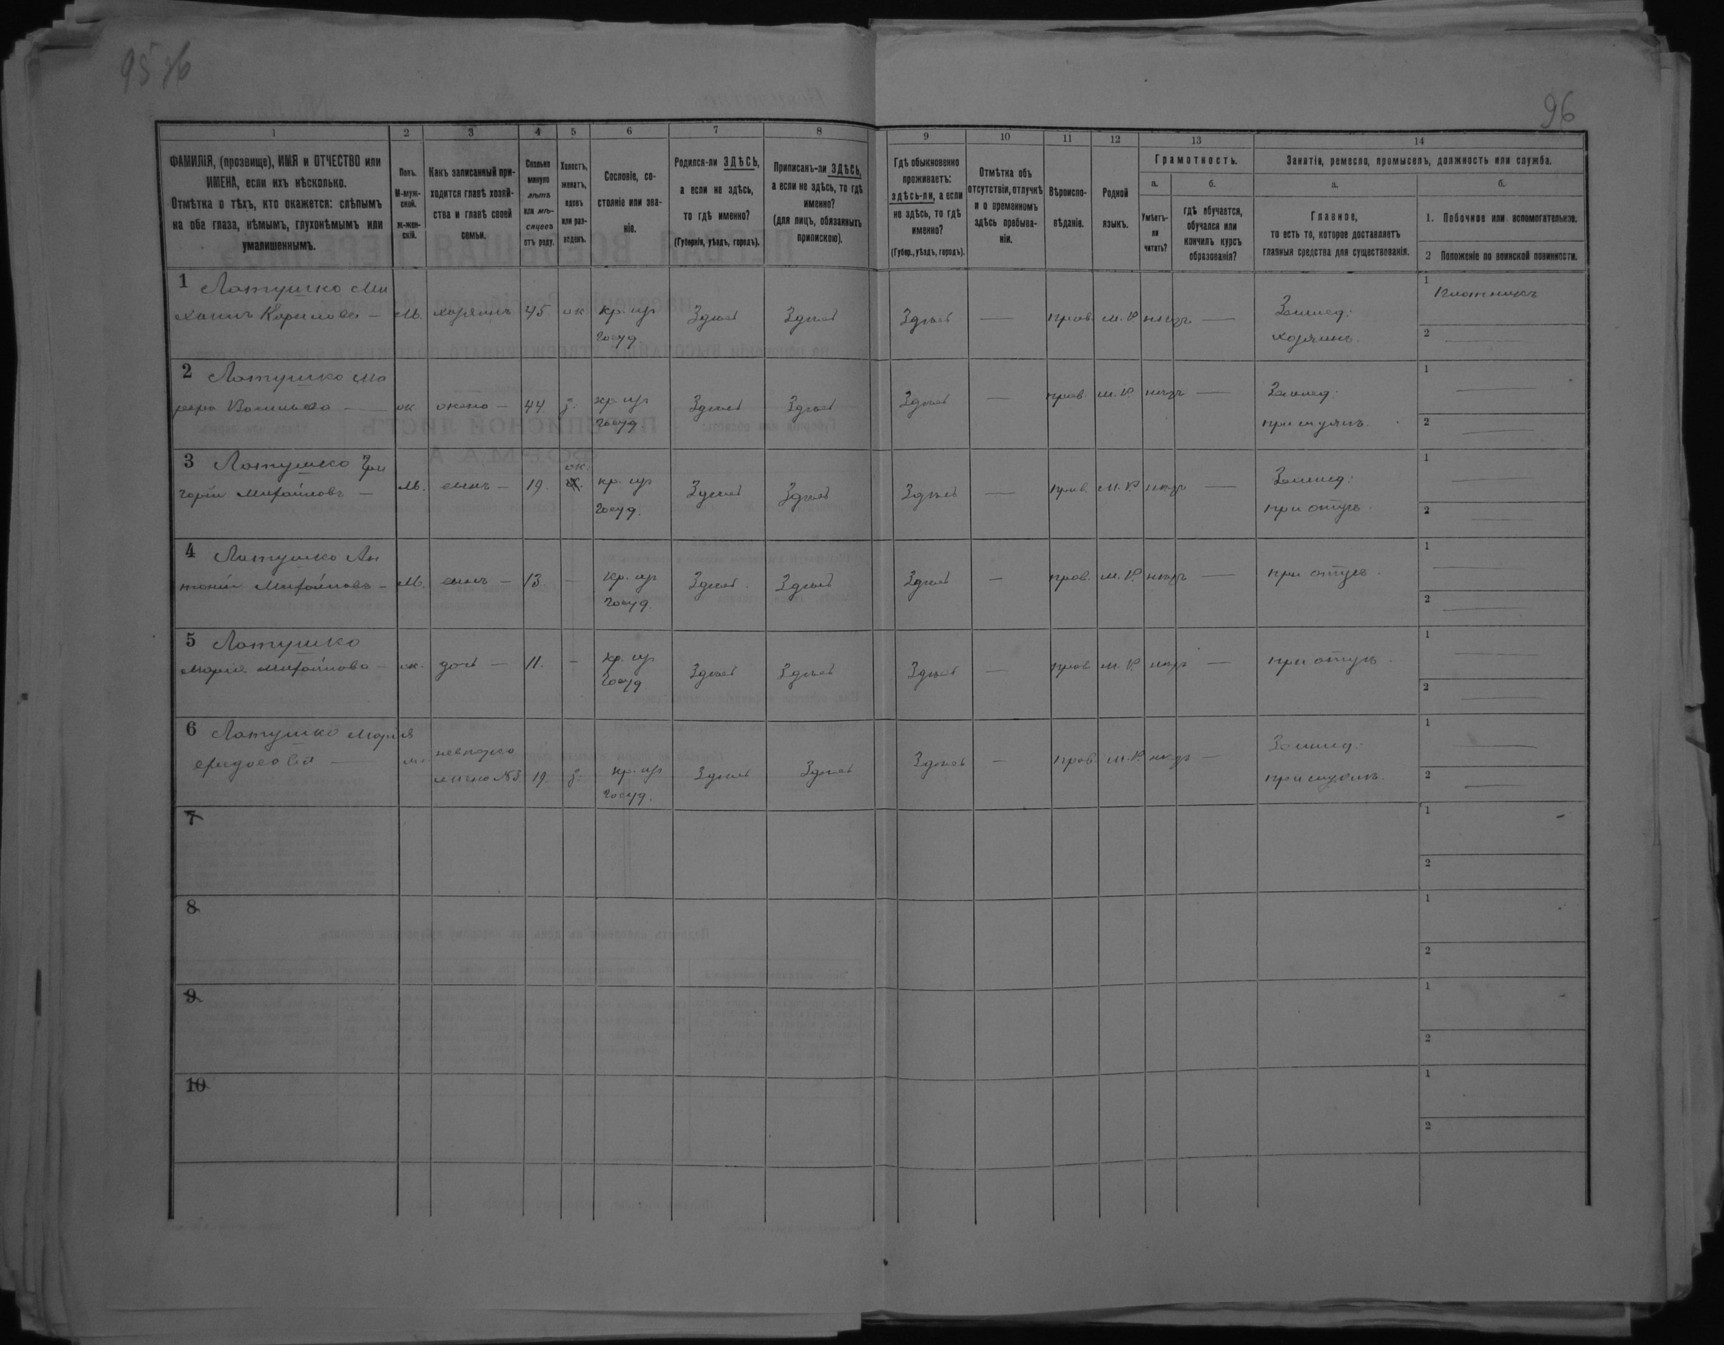 95 об
96
1
2
3
4
5
6
7
8
9
10
11
12
13
14
ФАМИЛІЯ, (прозвище), ИМЯ и ОТЧЕСТВО или
ИМЕНА, если ихъ нѣсколько.
Отмѣтка о тѣхъ, кто окажется: слѣпымъ
на оба глаза, нѣмымъ, глухонѣмымъ или
умалишеннымъ.
Полъ.
М-муж-
ской.
ж-жен-
скій.
Какъ записанный при-
ходится главѣ хозяй-
ства и главѣ своей
семьи.
Сколько
минуло
лѣтъ
или мѣ-
сяцевъ
отъ роду.
Холостъ,
женатъ,
вдовъ
или раз-
веденъ.
Сословіе, со-
стояніе или зва-
ніе.
Родился-ли ЗДѢСЬ,
а если не здѣсь,
то гдѣ именно?
(Губернія, уѣздъ, городъ).
Приписанъ-ли ЗДѢСЬ,
а если не здѣсь, то гдѣ
именно?
(для лицъ, обязанныхъ
припискою).
Гдѣ обыкновенно
проживаетъ:
здѣсь-ли, а если
не здѣсь, то гдѣ
именно?
(Губер., уѣздъ, городъ).
Отмѣтка объ
отсутствіи, отлучкѣ
и о временномъ
здѣсь пребыва-
ніи.
Вѣроиспо-
вѣданіе.
Родной
языкъ.
Грамотность.
а.
б.
Умѣетъ-
ли
читать?
гдѣ обучается,
обучался или
кончилъ курсъ
образованія?
Занятіе, ремесло, промыселъ, должность или служба.
а.
б.
Главное,
то есть то, которое доставляетъ
главныя средства для существованія.
1. Побочное или вспомогательное.
2 Положеніе по воинской повинности.
1 Латушко Ми
хаилъ Кириловъ — М. хозяинъ 45. ж кр. из Здѣсь Здѣсь Здѣсь — прав. м. р. нѣтъ — Землед. 1 Плотникъ
госуд. хозяинъ. 2
2 Латушко Ма
Васильева — ж жена — 44 з. кр. из Здѣсь Здѣсь Здѣсь — прав. м. р. нѣтъ — Землед. 1
госуд. при мужѣ. 2
3 Латушко Гри
горій Михайловъ — М. сынъ — 19. ж. кр. из Здѣсь Здѣсь Здѣсь — прав. м. р. нѣтъ — Землед. 1
госуд. при отцѣ. 2
4 Латушко Ан
тоній Михайловъ — М. сынъ — 13. — кр. из Здѣсь Здѣсь Здѣсь — прав. м. р. нѣтъ — при отцѣ. 1
госуд. 2
5 Латушко
Марія Михайлова — ж. дочь — 11. — кр. из Здѣсь Здѣсь Здѣсь — прав. м. р. нѣтъ — при отцѣ. 1
госуд 2
6 Латушко Марія
невѣстка
жена № 3 19. з. кр. из Здѣсь Здѣсь Здѣсь — прав. м. р. нѣтъ — Землед. 1
госуд. при мужѣ. 2
7
1
2
8
1
2
9
1
2
10
1
2